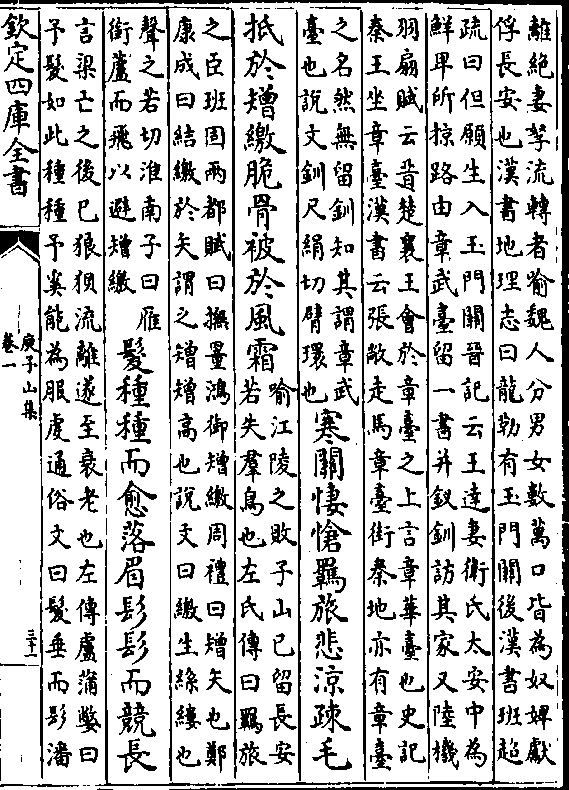 離絶妻孥流轉者喻魏人分男女數萬口皆為奴婢獻
俘長安也漢書地理志曰龍勒有玉門關後漢書班超
疏曰但願生入玉門關晉記云王達妻衛氏太安中為
鮮卑所掠路由章武臺留一書并釵釧訪其家又陸機
羽扇賦云昔楚襄王會於章臺之上言章華臺也史記
秦王坐章臺漢書云張敞走馬章臺街秦地亦有章臺
之名然無留釧知其謂章武
臺也說文釧尺絹切臂環也
寒關悽愴羈旅悲涼疎毛
抵於矰繳脆骨被於風霜
喻江陵之敗子山已留長安
若失羣鳥也左氏傳曰羈旅
之臣班固兩都賦曰撫罿鴻御矰繳周禮曰矰矢也鄭
康成曰結繳於矢謂之矰矰高也說文曰繳生絲縷也
聲之若切淮南子曰雁
銜蘆而飛以避矰繳
髮種種而愈落眉髟髟而競長
言梁亡之後已狼狽流離遂至衰老也左傳盧蒲嫳曰
予髮如此種種予奚能為服虔通俗文曰髮垂而髟潘
欽定四庫全書
庾子山集
卷一
三十一